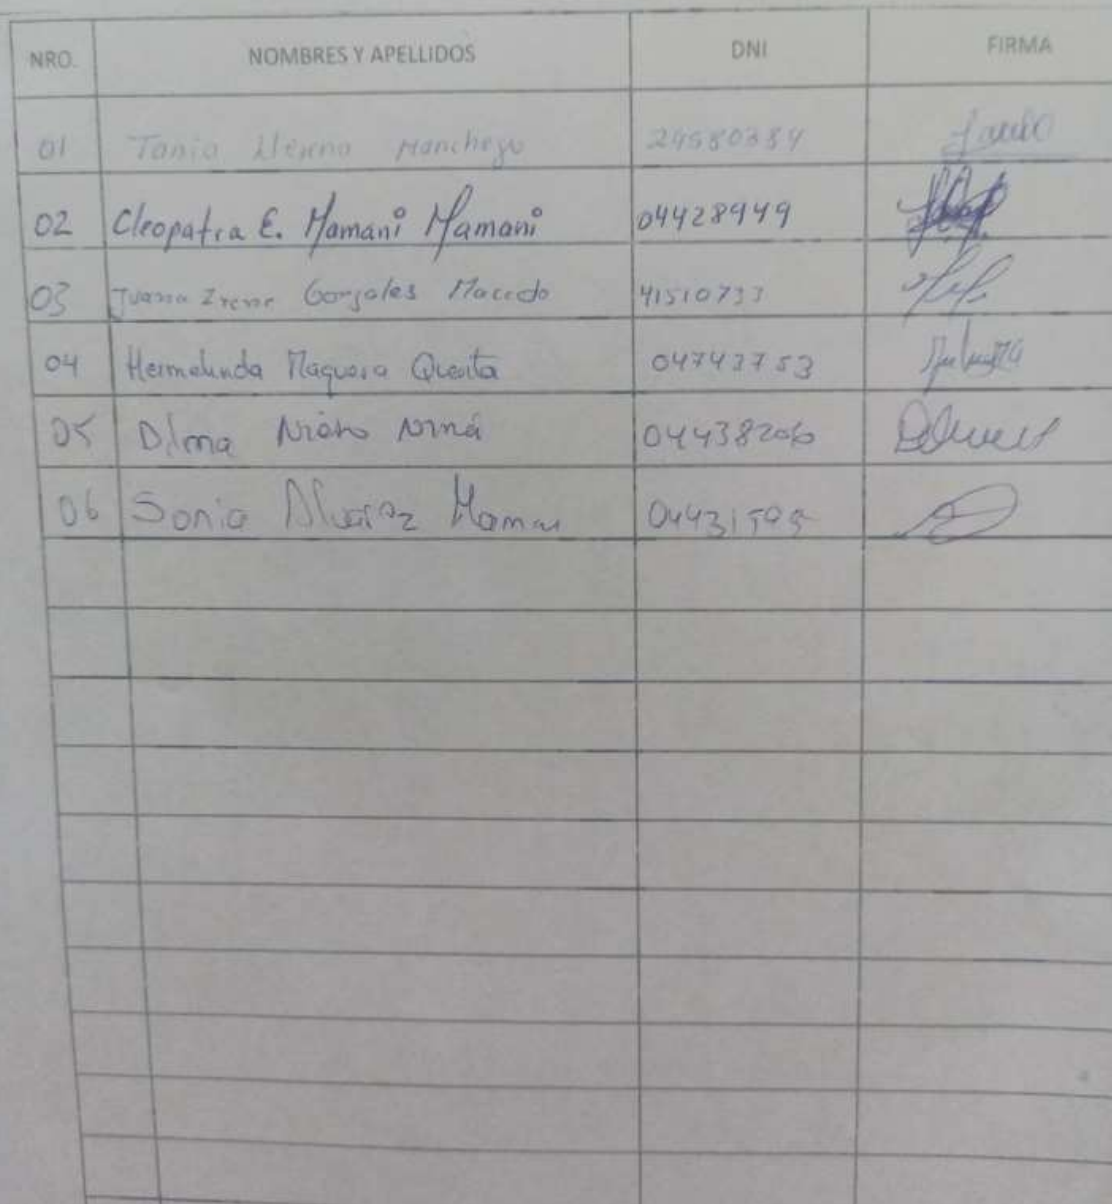 NRO. NOMBRES Y APELLIDOS DNI FIRMA
01 Tania Manchego 29580384
02 Cleopatra E. Mamani Mamani 04428949
03 Juana Irene Gonzales Macedo 41510733
04 Hermelinda Maquera 04743753
05 Dilma Nina 04438206
06 Sonia Alvarez Mamani